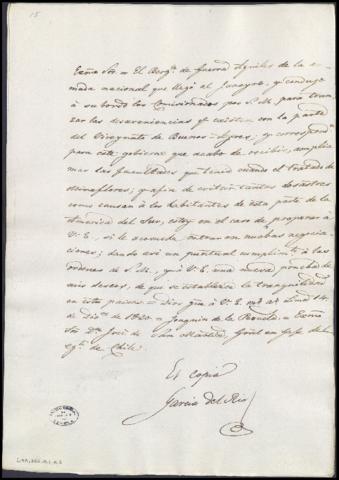 15
Exmo Sor = El Bergn. de Guerra Aquiles de la ar-
mada nacional que llegó al Janeyro, y conduje
á su bordo los Comisionados por S.M. para tran-
zar las desaveniencias qe existen con la parte
del Vireynato de Buenos-Ayres; y correspond.
para este gobierno que acabo de recibir, amplia
mas las facultades que tenia cuando el tratado de
Miraflores; y afin de evitar tantos desastres
como causan á los habitantes de esta parte de la
America del Sur, estoy en el caso de proponer á
V.E., si le acomoda entrar en nuebas negocia-
ciones; dando asi un puntual cumplimto. á las
ordenes de S.M., y á V.E. una nueva prueba de
mis deseos, de que se establezca la tranquilidad
en estos paises = Dios gue á V.E. ms. as. Lima 14
de Dice. de 1820. = Joaquin de la Pezuela = Exmo
Sor Dn. José de San Martin, Gral en Gefe del
egto. de Chile.
Es copia
Garcia del Rio